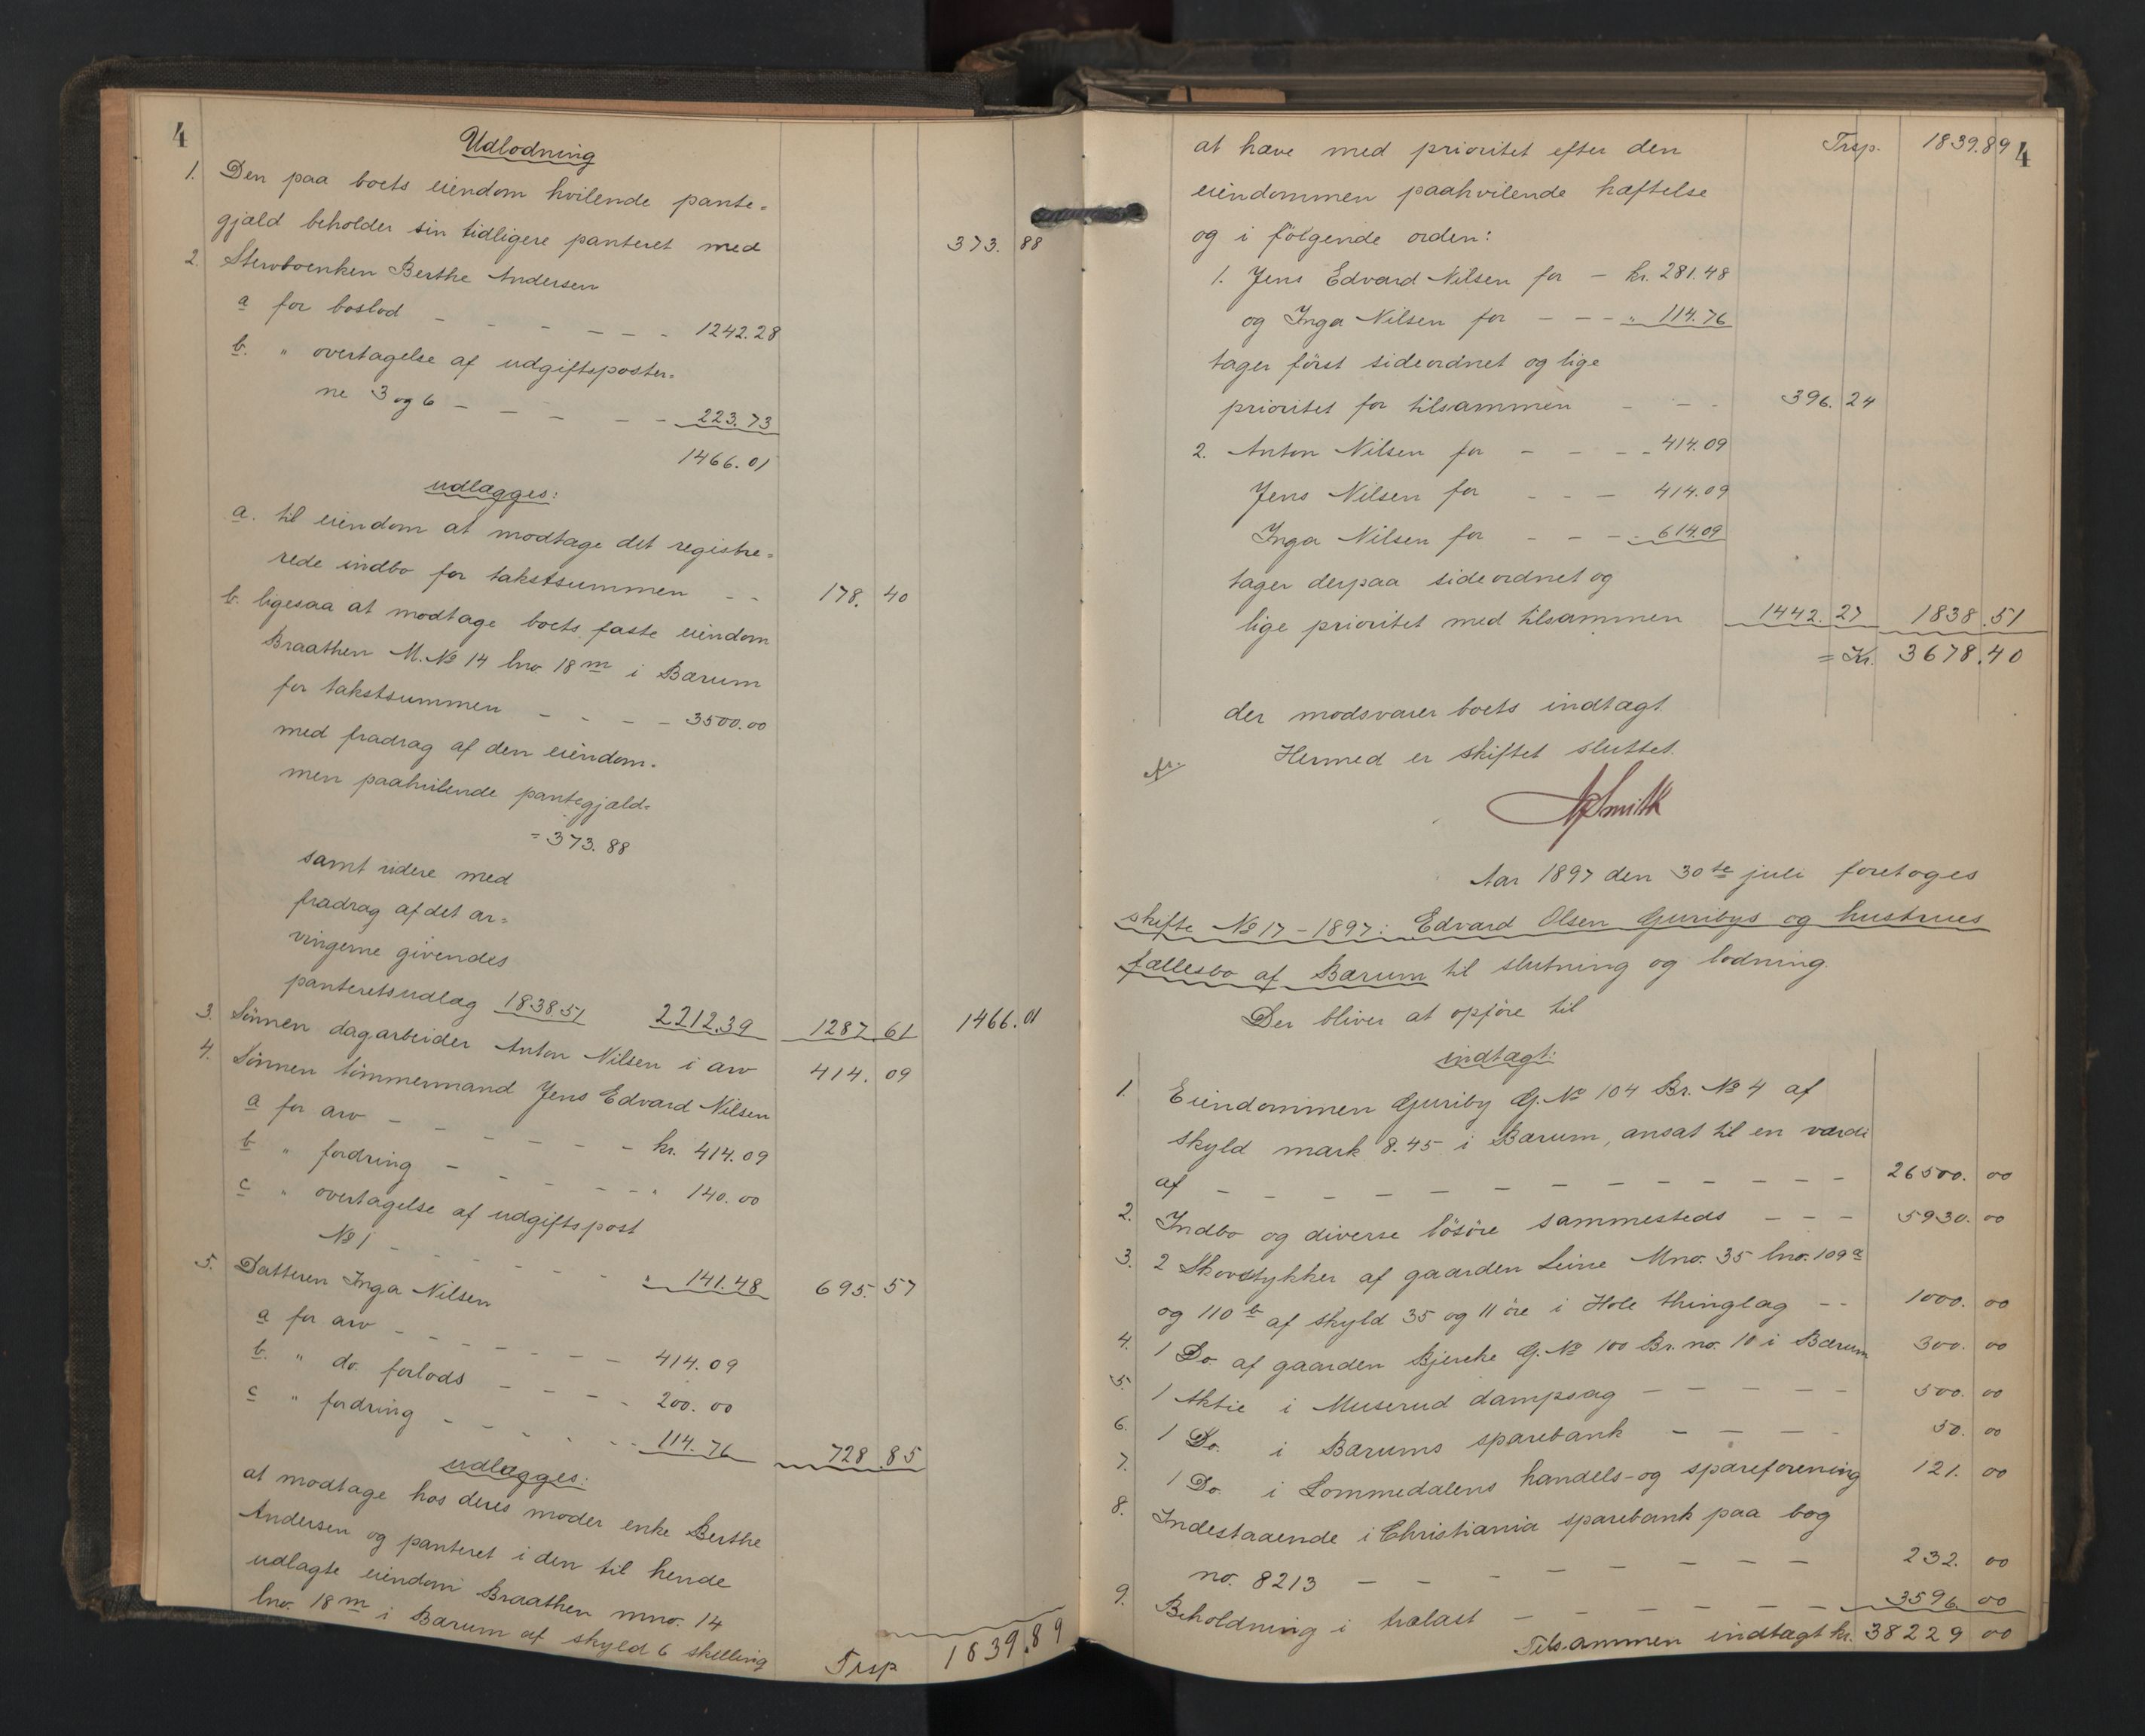 4
Udlodning
1. Den paa boets eiendom hvilende pante=
gjæld beholder sin tidligere panteret med 373. 88
2. Stervboenken Berthe Andersen
a for boslod - - - - - - 1242.28
b. " overtagelse af udgiftsposter=
ne 3 og 6 - - - - - 223.73
1466.01
udlægges:
a. til eiendom at modtage det registre=
rede indbo for takstsummen - - 178. 40
b. ligesaa at modtage boets faste eiendom
Braathen M. No 14 lno. 18 m i Bærum
for takstsummen - - - - 3500.00
med fradrag af den eiendom=
men paahvilende pantegjæld=
= 373.88
samt videre med
fradrag af det ar=
vingerne givendes
panteretsudlæg 1838 51 2212.39 1287 61 1466.01
3. Sönnen dagarbeider Anton Nilsen i arv 414. 09
4. Sönnen tömmermand Jens Edvard Nilsen
a for arv - - - - - - kr. 414.09
b " fordring - - - - - " 140.00
c " overtagelse af udgiftspost
No 1 - - - - - " 141.48 695. 57
5. Datteren Inga Nilsen
a for arv - - - - - - 414.09
b. " do. forlods - - - - 200.00
c " fordring - - - - - 114.76 728. 85
udlægges:
at modtage hos deres moder enke Berthe
Andersen og panteret i den til hende
udlagte eiendom Braathen mno. 14
lno. 18 m i Bærum af skyld 6 skilling
Trsp 1839.89
Trsp. 1839.89 4
at hæve med prioritet efter den
eiendommen paahvilende hæftelse
og i fölgende orden:
1. Jens Edvard Nilsen for - kr. 281.48
og Inga Nilsen for - - - " 114.76
tager först sideordnet og lige
prioritet for tilsammen - - - 396. 24
2. Anton Nilsen for - - - - 414.09
Jens Nilsen for - - - 414.09
Inga Nilsen for - - - - 614.09
tager derpaa sideordnet og
lige prioritet med tilsammen 1442. 27 1838. 51
= Kr. 3678.40
der modsvarer boets indtægt
Hermed er skiftet sluttet.
Smith
Aar 1897 den 30te juli foretoges
skifte No 17 - 1897: Edvard Olsen Guribys og hustrues
fællesbo af Bærum til slutning og lodning.
Der bliver at opföre til
indtægt:
1. Eiendommen Guriby G. No 104 Br. No 4 af
skyld mark 8.45 i Bærum, ansat til en værdi
af - - - - - - - - - - - - 26500. 00
2. Indbo og diverse lösöre sammesteds - - - 5930. 00
3. 2 Skovstykker af gaarden Leine Mno. 35 lno. 109 a
og 110 b af skyld 35 og 11 öre i Hole thinglag - - 1000. 00
4. 1 Do. af gaarden Bjerke G. No 100 Br. no. 10 i Bærum 300. 00
5. 1 Aktie i Muserud dampsag - - - - - 500. 00
6. 1 Do. i Bærums sparebank - - - - 50. 00
7. 1 Do. i Lommedalens handels- og spareforening 121. 00
8. Indestaaende i Christiania sparebank paa bog
no. 8213 - - - - - - - - 232. 00
9. Beholdning i trælast - - - - - - - 3596. 00
Tilsammen indtægt kr. 38229 00